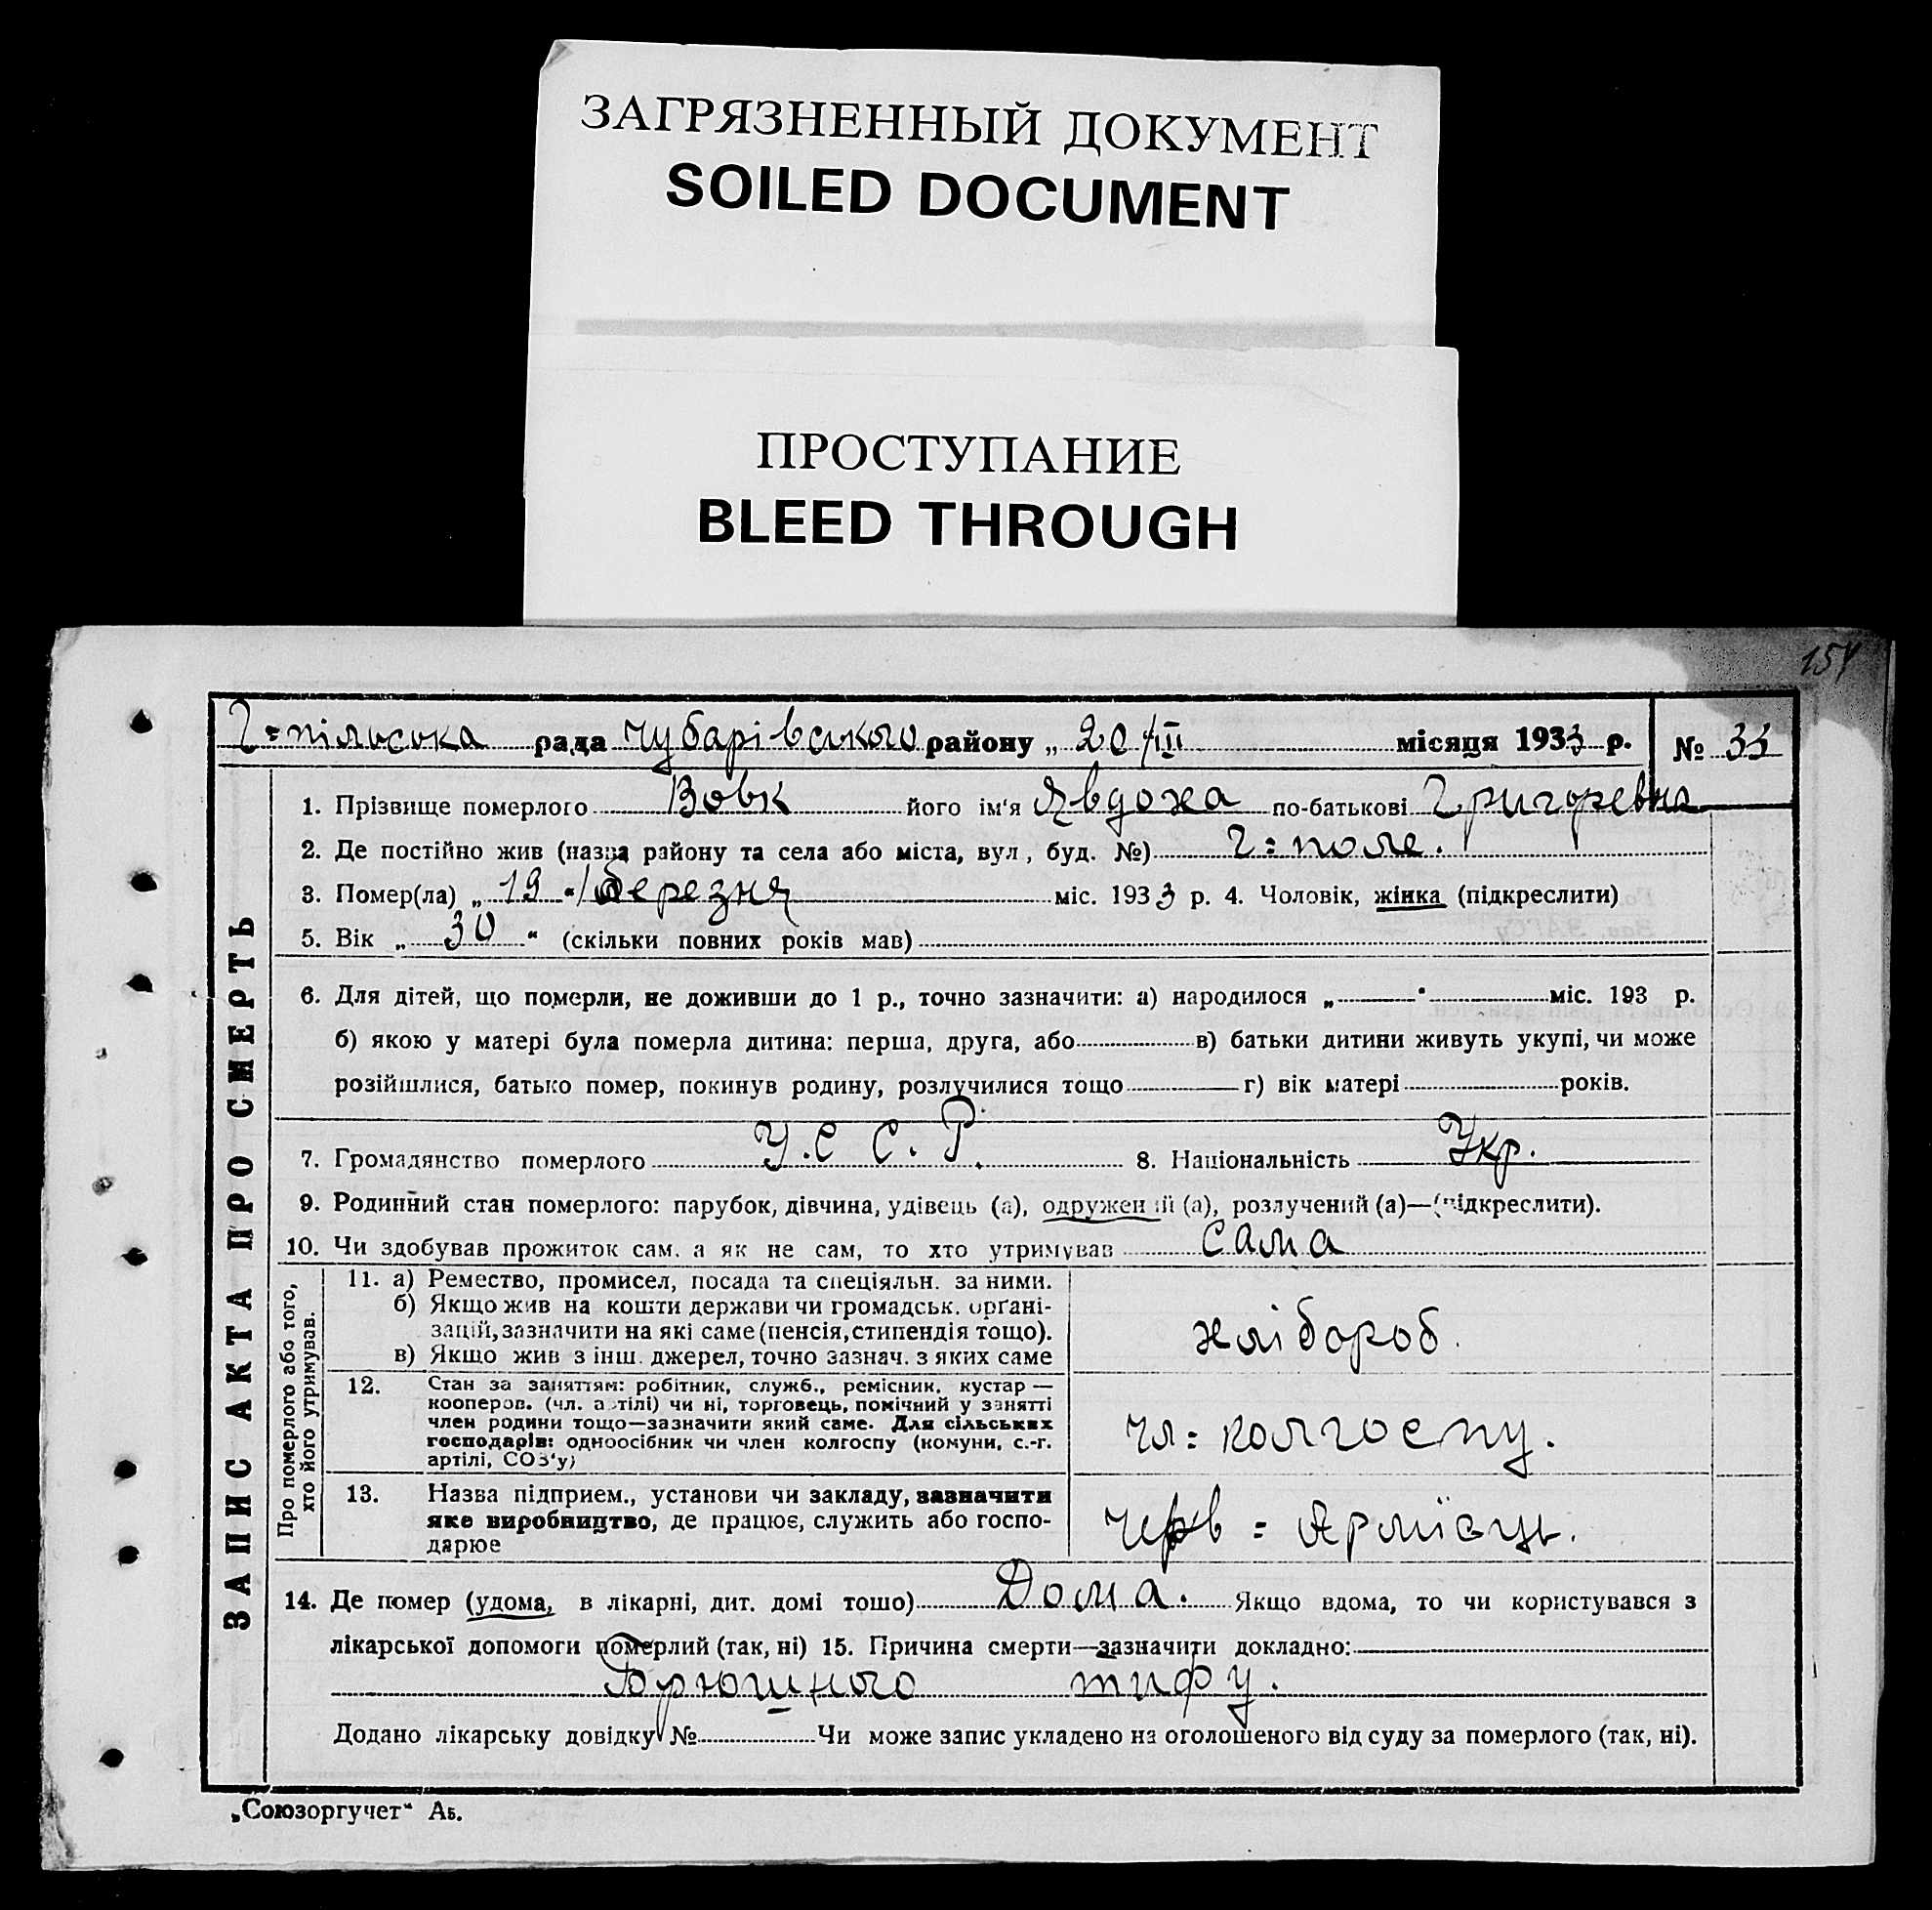 ЗАГРЯЗНЕННЫЙ ДОКУМЕНТ
SOILED DOCUMENT
ПРОСТУПАНИЕ
BLEED THROUGH
154
Г=пільська рада Чубарівського району „ 20/III місяця 1933 р. № 33
ЗАПИС АКТА ПРО СМЕРТЬ
1. Прізвище померлого Вовк його ім'я Явдоха по-батькові Григоревна
2. Де постійно жив (назва району та села або міста, вул, буд. №) Г=поле.
3. Помер(ла) „ 19 “ березня міс. 1933 р. 4. Чоловік, жінка (підкреслити)
5. Вік „ 30 “ (скільки повних років мав)
6. Для дітей, що померли, не доживши до 1 р., точно зазначити: а) народилося „ “ міс. 193 р.
б) якою у матері була померла дитина: перша, друга, або в) батьки дитини живуть укупі, чи може
розійшлися, батько помер, покинув родину, розлучилися тощо г) вік матері років.
7. Громадянство померлого У.С С.Р. 8. Національність Укр.
9. Родинний стан померлого: парубок, дівчина, удівець (а), одружений (а), розлучений (а)—(підкреслити).
10. Чи здобував прожиток сам. а як не сам, то хто утримував сама
Про померлого або того, хто його утримував.
11. а) Ремество, промисел, посада та спеціяльн. за ними.
б) Якщо жив на кошти держави чи громадськ. органі-
зацій, зазначити на які саме (пенсія, стипендія тощо).
в) Якщо жив з інш. джерел, точно зазнач. з яких саме
хлібороб.
12. Стан за заняттям: робітник, служб., ремісник, кустар —
кооперов. (чл. артілі) чи ні, торговець, помічний у занятті
член родини тощо—зазначити який саме. Для сільських
господарів: одноосібник чи член колгоспу (комуни, с.-г.
артілі, СОЗ'у)
чл=колгоспу.
13. Назва підприєм., установи чи закладу, зазначити
яке виробництво, де працює, служить або госпо-
дарює
Черв=Армієць.
14. Де помер (удома, в лікарні, дит. домі тощо) Дома. Якщо вдома, то чи користувався з
лікарської допомоги померлий (так, ні) 15. Причина смерти—зазначити докладно:
Брюшного тифу.
Додано лікарську довідку № Чи може запис укладено на оголошеного від суду за померлого (так, ні).
„Союзоргучет“ Аб.